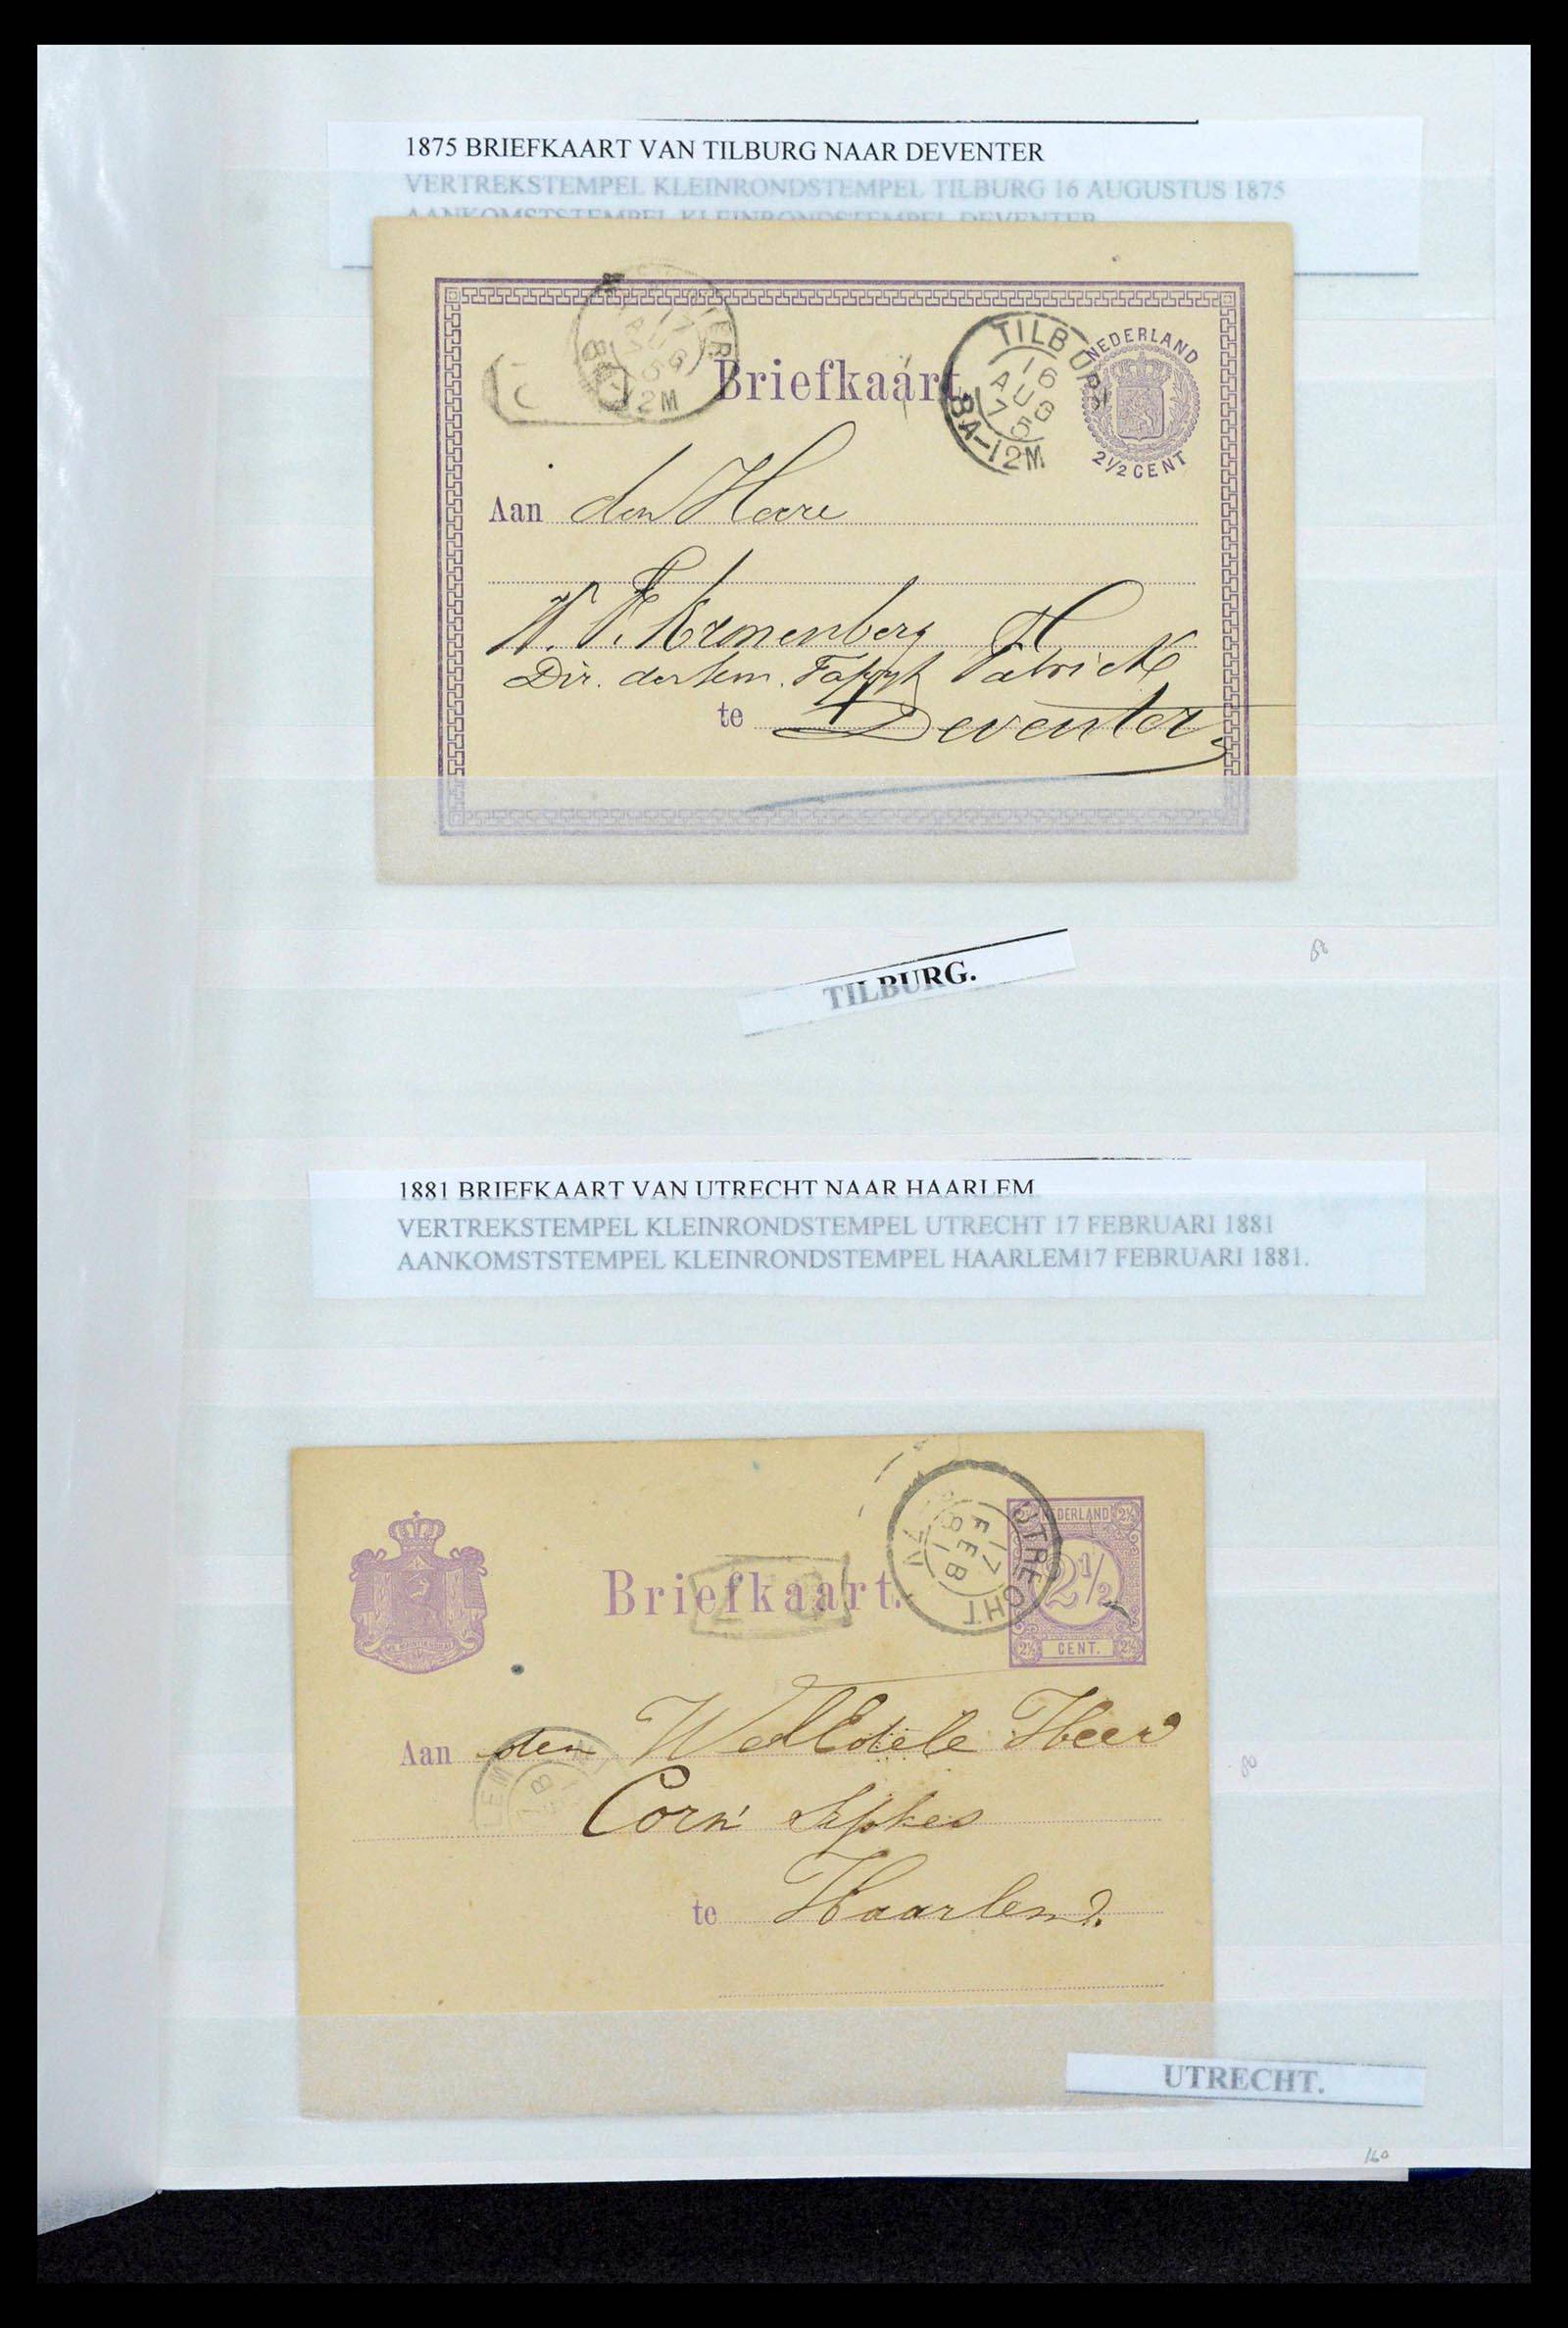 1875 BRIEFKAART VAN TILBURG NAAR DEVENTER
VERTREKSTEMPEL KLEINRONDSTEMPEL TILBURG 16 AUGUSTUS 1875
AANKOMSTSTEMPEL KLEINRONDSTEMPEL DEVENTER
17 AUG 75
8A-12M
Briefkaart.
TILBURG
16 AUG 75
8A-12M
NEDERLAND
2½ CENT
Aan den Heere
W. F. Kronenberg
Dir. der
te Deventer
TILBURG.
1881 BRIEFKAART VAN UTRECHT NAAR HAARLEM
VERTREKSTEMPEL KLEINRONDSTEMPEL UTRECHT 17 FEBRUARI 1881
AANKOMSTSTEMPEL KLEINRONDSTEMPEL HAARLEM17 FEBRUARI 1881.
Briefkaart.
UTRECHT
17 FEB 81
NEDERLAND
2½
CENT.
Aan den WelEdele Heer
Corn
te Haarlem.
UTRECHT.
160